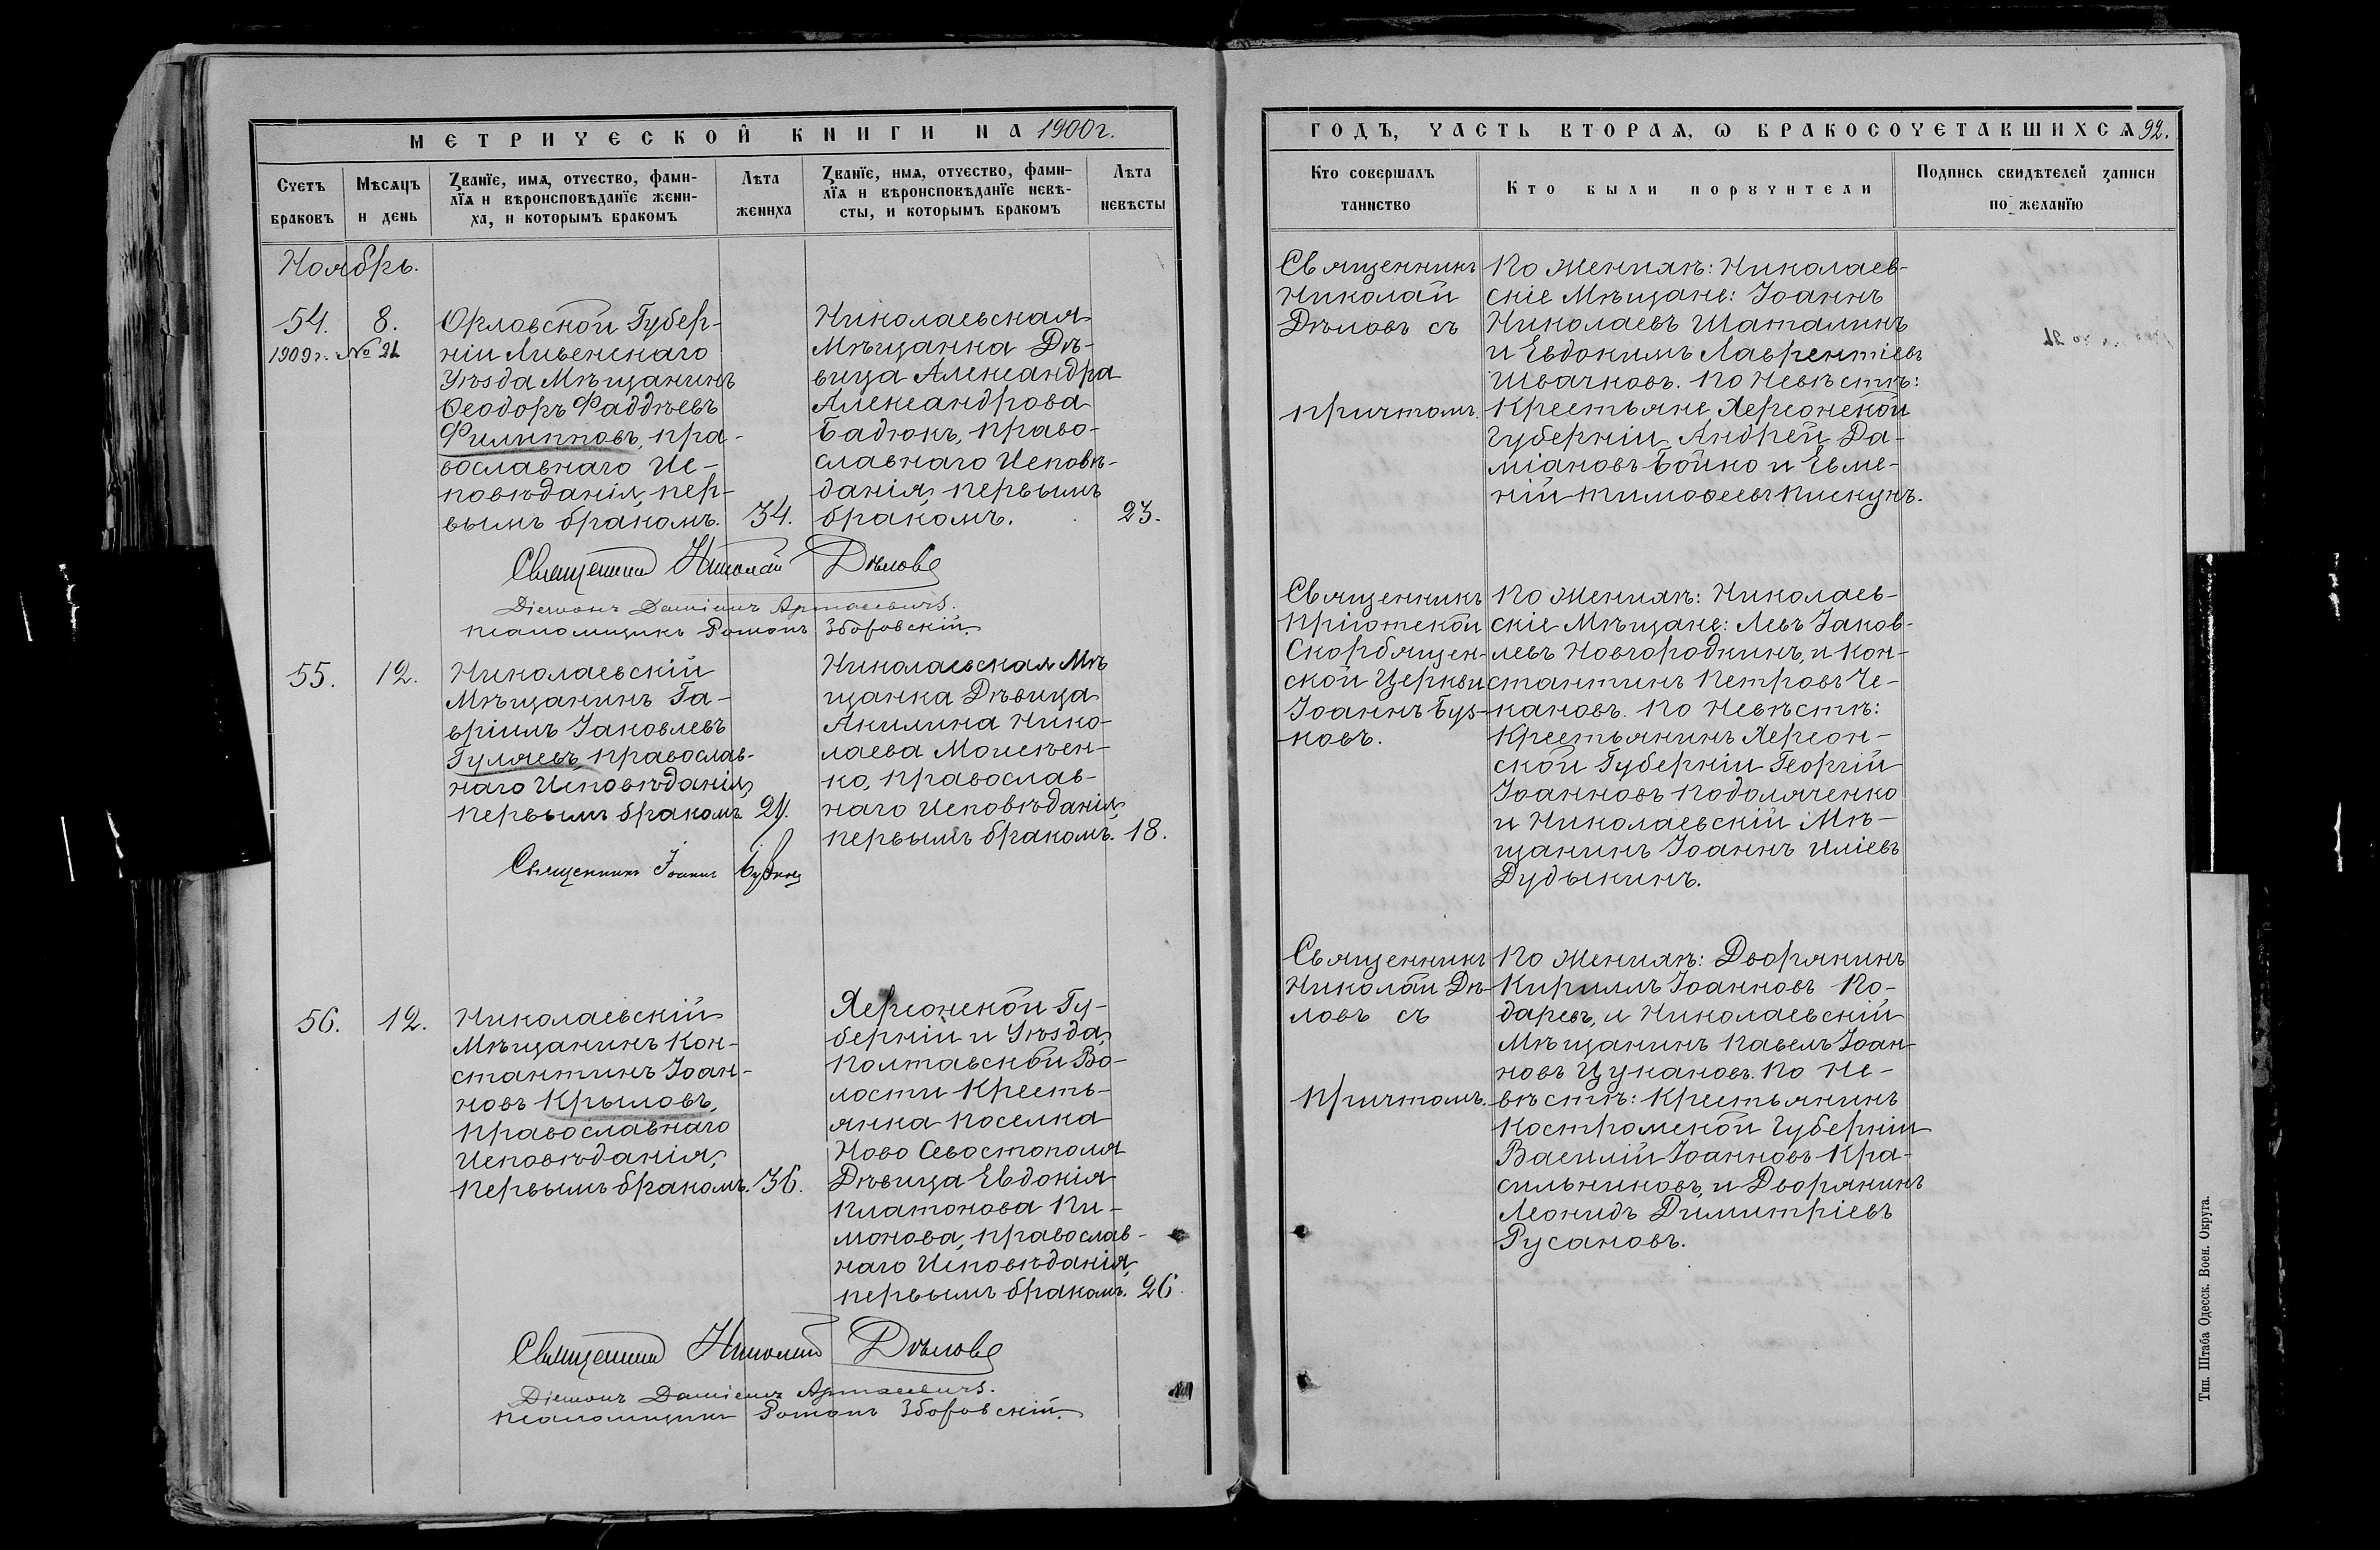 МЕТРИЧЕСКОЙ КНИГИ НА 1900 г.
Счетъ браковъ
Мѣсяцъ и день
Званїе, имя, отчество, фамилїя и вѣроисповѣданїе жениха, и которымъ бракомъ
Лѣта жениха
Званїе, имя, отчество, фамилїя и вѣроисповѣданїе невѣсты, и которымъ бракомъ
Лѣта невѣсты
Ноябрь.
54.
1909 г. № 21
8.
Орловской Губер-
ніи Ливенскаго
Уѣзда Мѣщанинъ
Ѳеодоръ Фаддѣевъ
Филипповъ, пра-
вославнаго Ис-
повѣданія, пер-
вымъ бракомъ.
34.
Николаевская
Мѣщанка Дѣ-
вица Александра
Александрова
Бадюкъ, право-
славнаго Исповѣ-
данія, первымъ
бракомъ.
23.
Священникъ Николай Дѣловъ
Діаконъ Даміанъ
Псаломщикъ Романъ Зборовскій.
55.
12.
Николаевскій
Мѣщанинъ Га-
вріилъ Іаковлевъ
Гуляевъ, православ-
наго Исповѣданія,
первымъ бракомъ.
24.
Николаевская Мѣ
щанка Дѣвица
Акилина Нико-
лаева Моисѣен-
ко, православ-
наго Исповѣданія,
первымъ бракомъ.
18.
Священникъ Іоаннъ
56.
12.
Николаевскій
Мѣщанинъ Кон-
стантинъ Іоан-
новъ Крыловъ,
православнаго
Исповѣданія,
первымъ бракомъ.
36.
Херсонской Гу-
берніи и Уѣзда,
Полтавской Во-
лости Кресть-
янка поселка
Ново Севостополя
Дѣвица Евдокія
Платонова Пи-
монова, православ-
наго Исповѣданія,
первымъ бракомъ.
26.
Священникъ Николай Дѣловъ
Діаконъ Даміанъ
Псаломщикъ Романъ Зборовскій.
ГОДЪ, ЧАСТЬ ВТОРАЯ, Ѡ БРАКОСОЧЕТАВШИХСЯ 92.
Кто совершалъ таинство
Кто были поручители
Подпись свидѣтелей записи по желанїю
Священникъ
Николай
Дѣловъ съ
причтомъ.
По женихѣ: Николаев-
скіе Мѣщане: Іоаннъ
Николаевъ Шаталинъ
и Евдокимъ Лаврентіевъ
Швачковъ. По невѣстѣ:
Крестьяне Херсонской
Губерніи Андрей Да-
міановъ Бойко и Евме-
ній Тимоѳеевъ Пискунъ.
Священникъ
Пріютской
Скорбящен-
ской Церкви
Іоаннъ Буз-
ковъ.
По женихѣ: Николаев-
скіе Мѣщане: Левъ Іаков-
левъ Новгородкинъ, и Кон-
стантинъ Петровъ Че-
кановъ. По невѣстѣ:
Крестьянинъ Херсон-
ской Губерніи Георгій
Іоанновъ Подоляченко
и Николаевскій Мѣ-
щанинъ Іоаннъ Иліевъ
Дудыкинъ.
Священникъ
Николай Дѣ-
ловъ съ
причтомъ.
По женихѣ: Дворянинъ
Кириллъ Іоанновъ По-
даревъ, и Николаевскій
Мѣщанинъ Павелъ Іоан-
новъ Цукановъ. По не-
вѣстѣ: Крестьянинъ
Костромской Губерніи
Василій Іоанновъ Кра-
сильниковъ, и Дворянинъ
Леонидъ Димитріевъ
Русановъ.
Тип. Штаба Одесск. Воен. Округа.